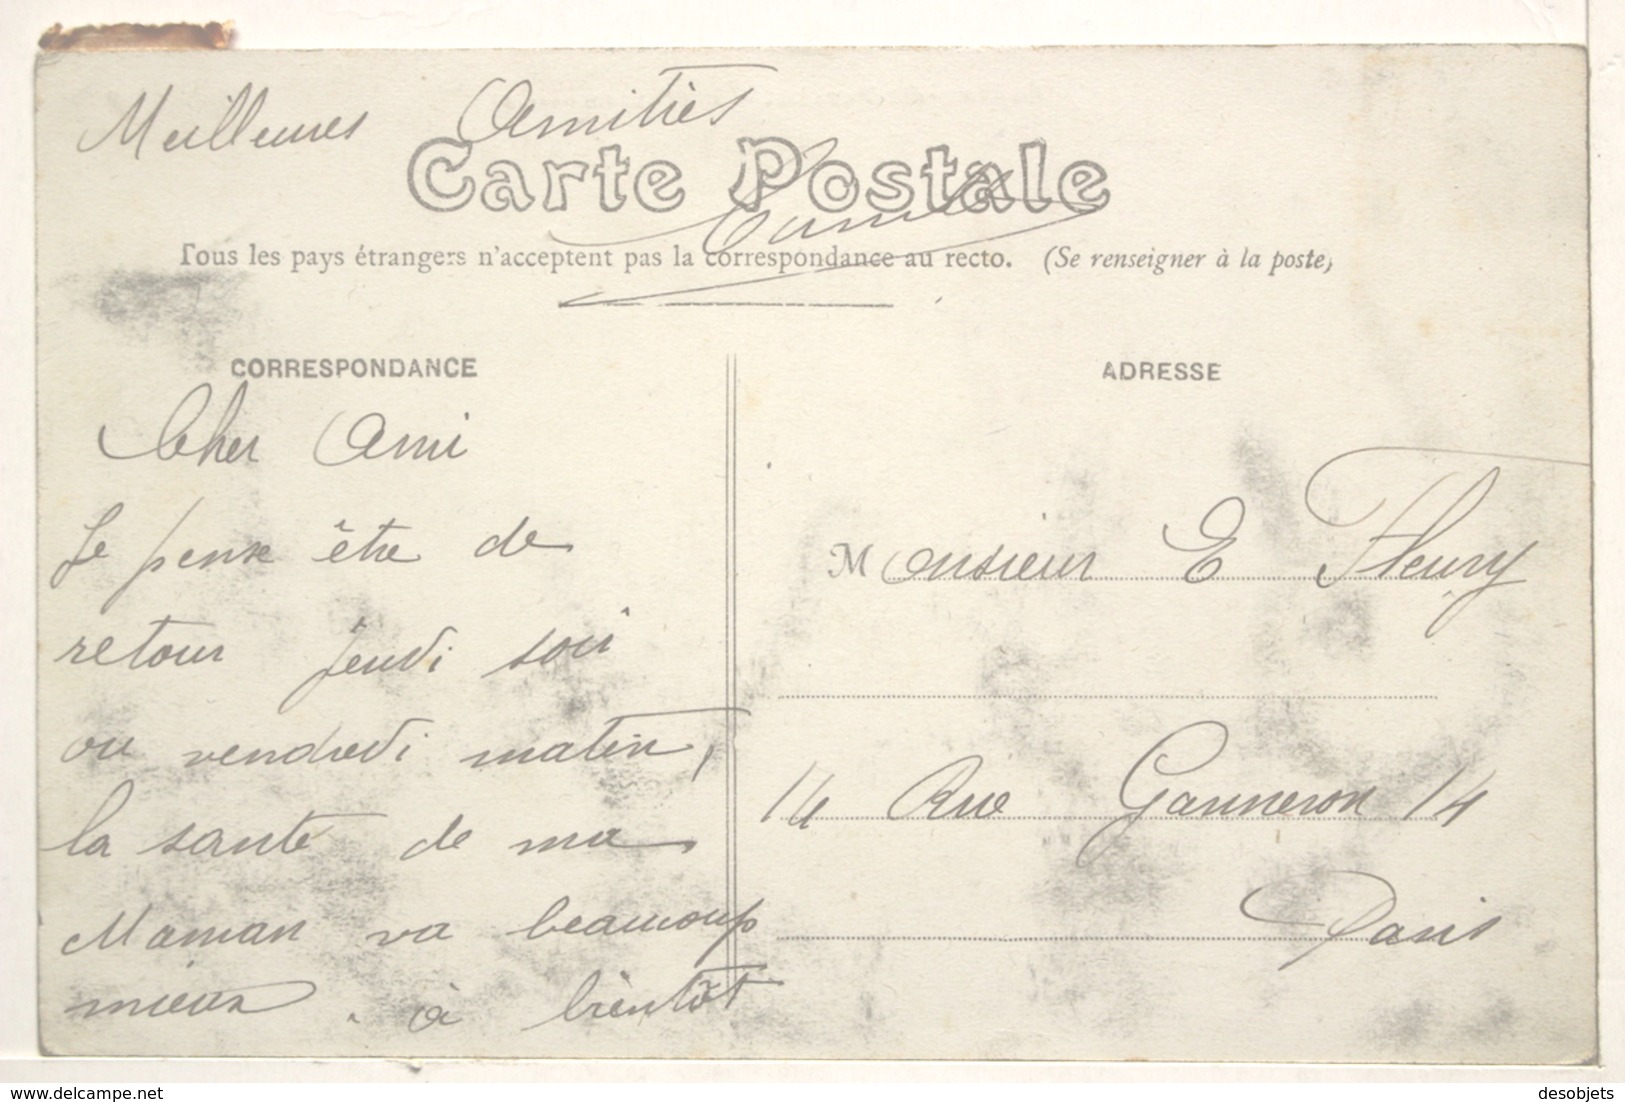 Meilleures Amitiés
Carte Postale
Tous les pays étrangers n'acceptent pas la correspondance au recto. (Se renseigner à la poste)
CORRESPONDANCE
Cher Ami
Je pense être de
retour jeudi soir
ou vendredi matin,
la santé de ma
Maman va beaucoup
mieux. à bientôt
ADRESSE
Monsieur E Fleury
14 Rue Ganneron 14
Paris
www.delcampe.net
desobjets